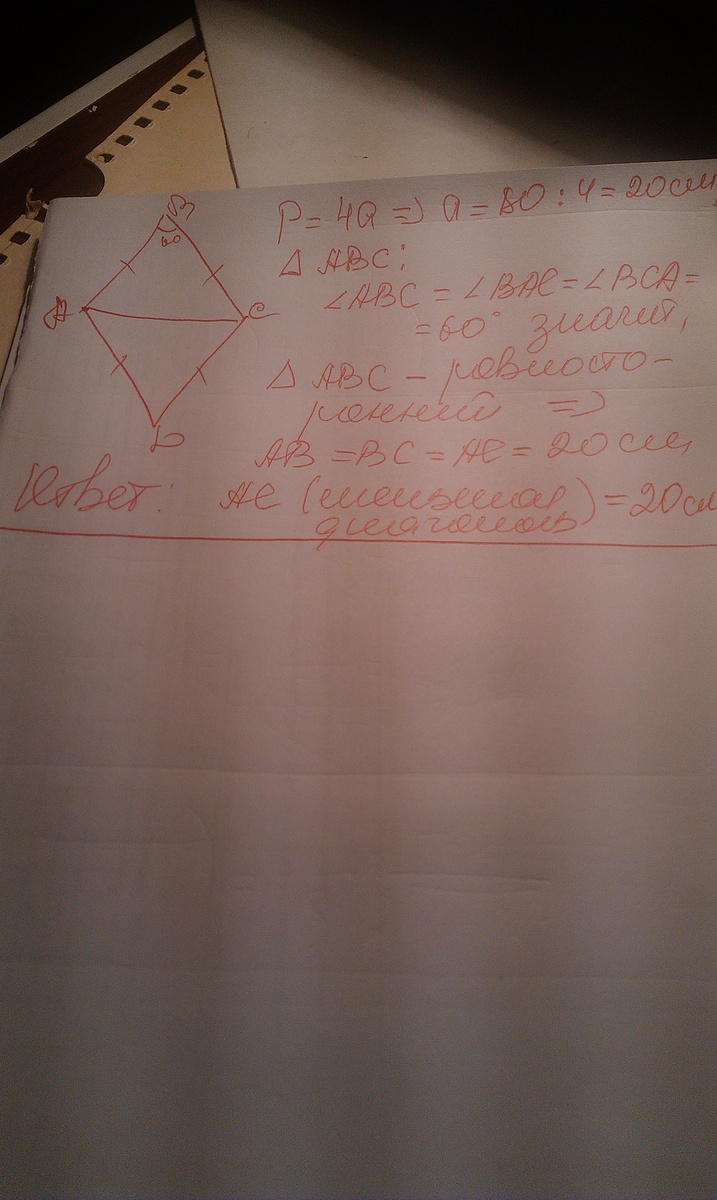 B
60
A
C
D
P = 4a => a = 80 : 4 = 20 см
Δ ABC:
∠ABC = ∠BAC = ∠BCA =
= 60° значит,
Δ ABC – равносто-
ронний =>
AB = BC = AC = 20 см,
Ответ: AC (меньшая
диагональ) = 20 см